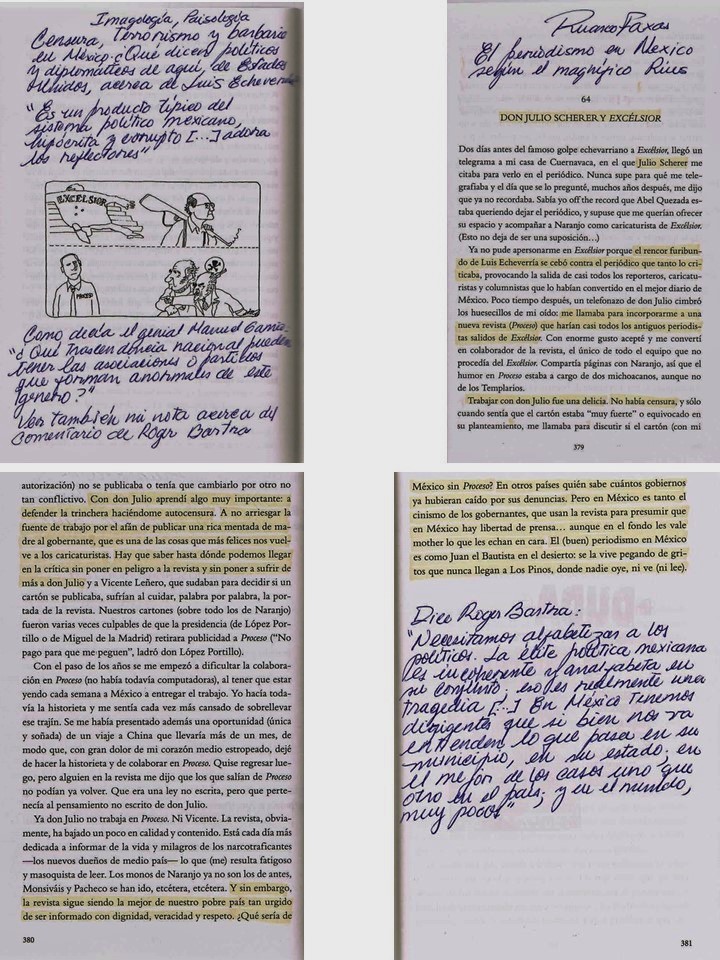 Imagología, Paisología
Censura, Terrorismo y barbarie
en México ¿Qué dicen políticos
y diplomáticos de aquí, de Estados
Unidos, acerca de Luis Echeverría
"Es un producto típico del
sistema político mexicano,
hipócrita y corrupto [...] adora
los reflectores"
EXCELSIOR
PROCESO
Como decía el genial Manuel
"¿Qué trascendencia nacional pueden
tener las asociaciones o partidos
que forman anormales de este
género?"
Ver también mi nota acerca del
comentario de Roger Bartra
El periodismo en México
según el magnífico Rius
64
DON JULIO SCHERER Y EXCÉLSIOR
Dos días antes del famoso golpe echevarriano a Excélsior, llegó un
telegrama a mi casa de Cuernavaca, en el que Julio Scherer me
citaba para verlo en el periódico. Nunca supe para qué me tele-
grafiaba y el día que se lo pregunté, muchos años después, me dijo
que ya no recordaba. Sabía yo off the record que Abel Quezada es-
taba queriendo dejar el periódico, y supuse que me querían ofrecer
su espacio y acompañar a Naranjo como caricaturista de Excélsior.
(Esto no deja de ser una suposición...)
Ya no pude apersonarme en Excélsior porque el rencor furibun-
do de Luis Echeverría se cebó contra el periódico que tanto lo cri-
ticaba, provocando la salida de casi todos los reporteros, caricatu-
ristas y columnistas que lo habían convertido en el mejor diario de
México. Poco tiempo después, un telefonazo de don Julio cimbró
los huesecillos de mi oído: me llamaba para incorporarme a una
nueva revista (Proceso) que harían casi todos los antiguos periodis-
tas salidos de Excélsior. Con enorme gusto acepté y me convertí
en colaborador de la revista, el único de todo el equipo que no
procedía del Excélsior. Compartía páginas con Naranjo, así que el
humor en Proceso estaba a cargo de dos michoacanos, aunque no
de los Templarios.
Trabajar con don Julio fue una delicia. No había censura, y sólo
cuando sentía que el cartón estaba "muy fuerte" o equivocado en
su planteamiento, me llamaba para discutir si el cartón (con mi
379
autorización) no se publicaba o tenía que cambiarlo por otro no
tan conflictivo. Con don Julio aprendí algo muy importante: a
defender la trinchera haciéndome autocensura. A no arriesgar la
fuente de trabajo por el afán de publicar una rica mentada de ma-
dre al gobernante, que es una de las cosas que más felices nos vuel-
ve a los caricaturistas. Hay que saber hasta dónde podemos llegar
en la crítica sin poner en peligro a la revista y sin poner a sufrir de
más a don Julio y a Vicente Leñero, que sudaban para decidir si un
cartón se publicaba, sufrían al cuidar, palabra por palabra, la por-
tada de la revista. Nuestros cartones (sobre todo los de Naranjo)
fueron varias veces culpables de que la presidencia (de López Por-
tillo o de Miguel de la Madrid) retirara publicidad a Proceso ("No
pago para que me peguen", ladró don López Portillo).
Con el paso de los años se me empezó a dificultar la colabora-
ción en Proceso (no había todavía computadoras), al tener que estar
yendo cada semana a México a entregar el trabajo. Yo hacía toda-
vía la historieta y me sentía cada vez más cansado de sobrellevar
ese trajín. Se me había presentado además una oportunidad (única
y soñada) de un viaje a China que llevaría más de un mes, de
modo que, con gran dolor de mi corazón medio estropeado, dejé
de hacer la historieta y de colaborar en Proceso. Quise regresar lue-
go, pero alguien en la revista me dijo que los que salían de Proceso
no podían ya volver. Que era una ley no escrita, pero que perte-
necía al pensamiento no escrito de don Julio.
Ya don Julio no trabaja en Proceso. Ni Vicente. La revista, obvia-
mente, ha bajado un poco en calidad y contenido. Está cada día más
dedicada a informar de la vida y milagros de los narcotraficantes
—los nuevos dueños de medio país— lo que (me) resulta fatigoso
y masoquista de leer. Los monos de Naranjo ya no son los de antes,
Monsiváis y Pacheco se han ido, etcétera, etcétera. Y sin embargo,
la revista sigue siendo la mejor de nuestro pobre país tan urgido
de ser informado con dignidad, veracidad y respeto. ¿Qué sería de
380
México sin Proceso? En otros países quién sabe cuántos gobiernos
ya hubieran caído por sus denuncias. Pero en México es tanto el
cinismo de los gobernantes, que usan la revista para presumir que
en México hay libertad de prensa... aunque en el fondo les vale
mother lo que les echan en cara. El (buen) periodismo en México
es como Juan el Bautista en el desierto: se la vive pegando de gri-
tos que nunca llegan a Los Pinos, donde nadie oye, ni ve (ni lee).
Dice Roger Bartra:
"Necesitamos alfabetizar a los
políticos. La élite política mexicana
es incoherente y analfabeta en
su conjunto; eso es realmente una
tragedia [...] En México tenemos
dirigentes que si bien nos va
entienden lo que pasa en su
municipio, en su estado; en
el mejor de los casos uno que
otro en el país; y en el mundo,
muy pocos"
381